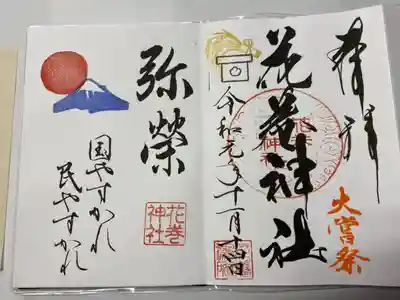 奉拝
大嘗祭
花巻神社
令和元年十一月十四日
弥榮
花巻
神社
国やすかれ
民やすかれ